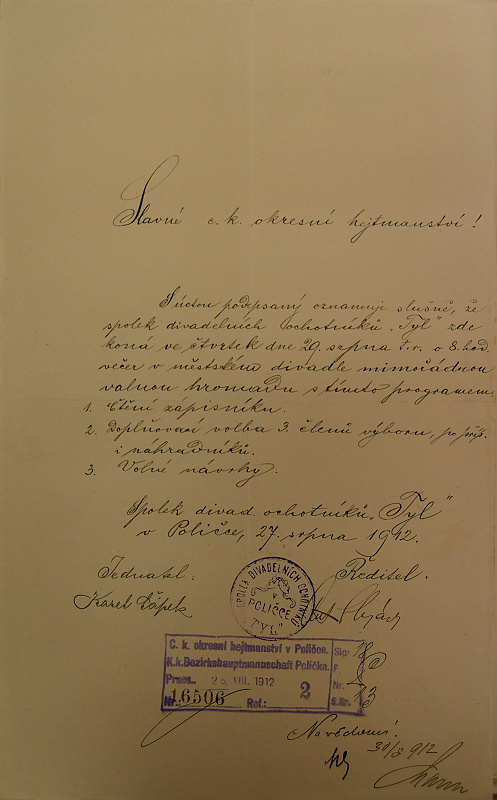 Slavné c. k. okresní hejtmanství!
S úctou podepsaný oznamuje slušně, že
spolek divadelních ochotníků „Tyl" zde
koná ve čtvrtek dne 29. srpna t. r. o 8. hod.
večer v městském divadle mimořádnou
valnou hromadu s tímto programem
1. Čtění zápisníku.
2. Doplňovací volba 3. členů výboru, po příp.
i náhradníků.
3. Volné návrhy.
Spolek divad. ochotníků „Tyl"
v Poličce, 27. srpna 1912.
Jednatel. Ředitel.
Karel
SPOLEK DIVADELNÍCH OCHOTNÍKŮ
V POLIČCE
"TYL"
C. k. okresní hejtmanství v Poličce.
K.k. Bezirkshauptmannschaft Polička.
Praes. VIII. 1912
Nr. 16506 Ref.: 2
Sig.
F.
Nr.
S.Nr.
Na vědomí.
30/8 912